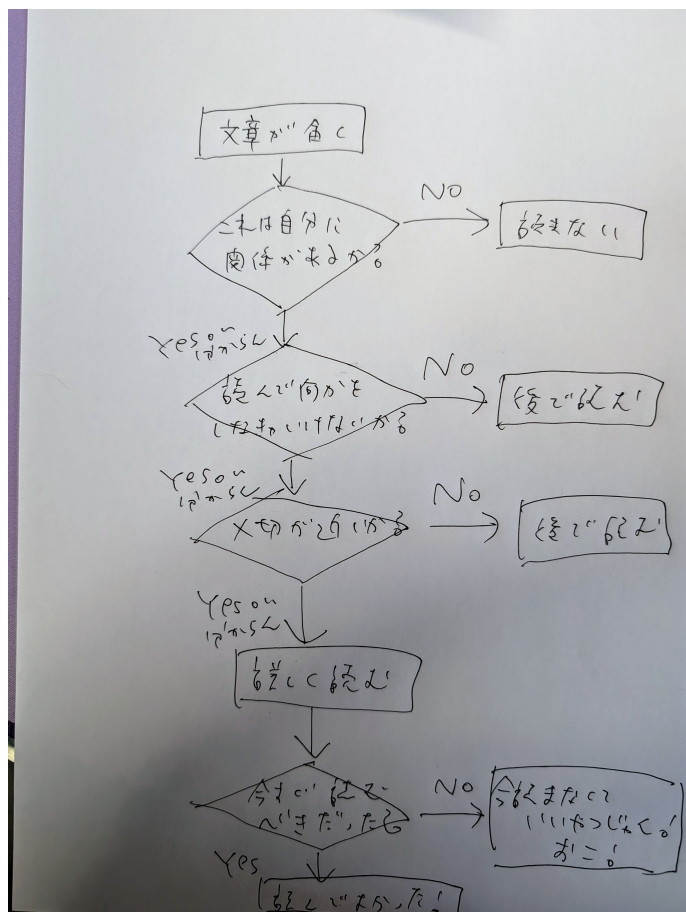 文章が届く
これは自分に
関係があるか?
NO
読まない
Yes or
分からん
読んで何かを
しなきゃいけないか?
No
後で読む
Yes or
分からん
〆切が近いか?
No
後で読む
Yes or
分からん
詳しく読む
今すぐ読む
べきだった?
NO
今読まなくて
いいやつじゃん!
おこ!
Yes
読んでよかった!